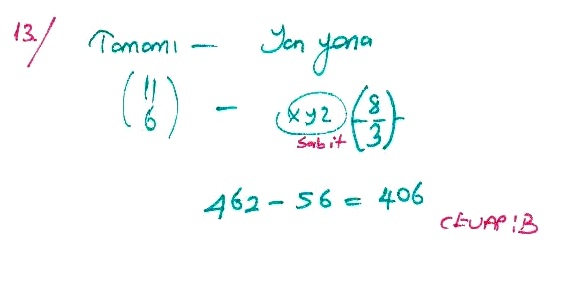 13/ Tamamı - Yan yana
(11 6) - xyz (8 3)
Sabit
462 - 56 = 406
CEVAP: B